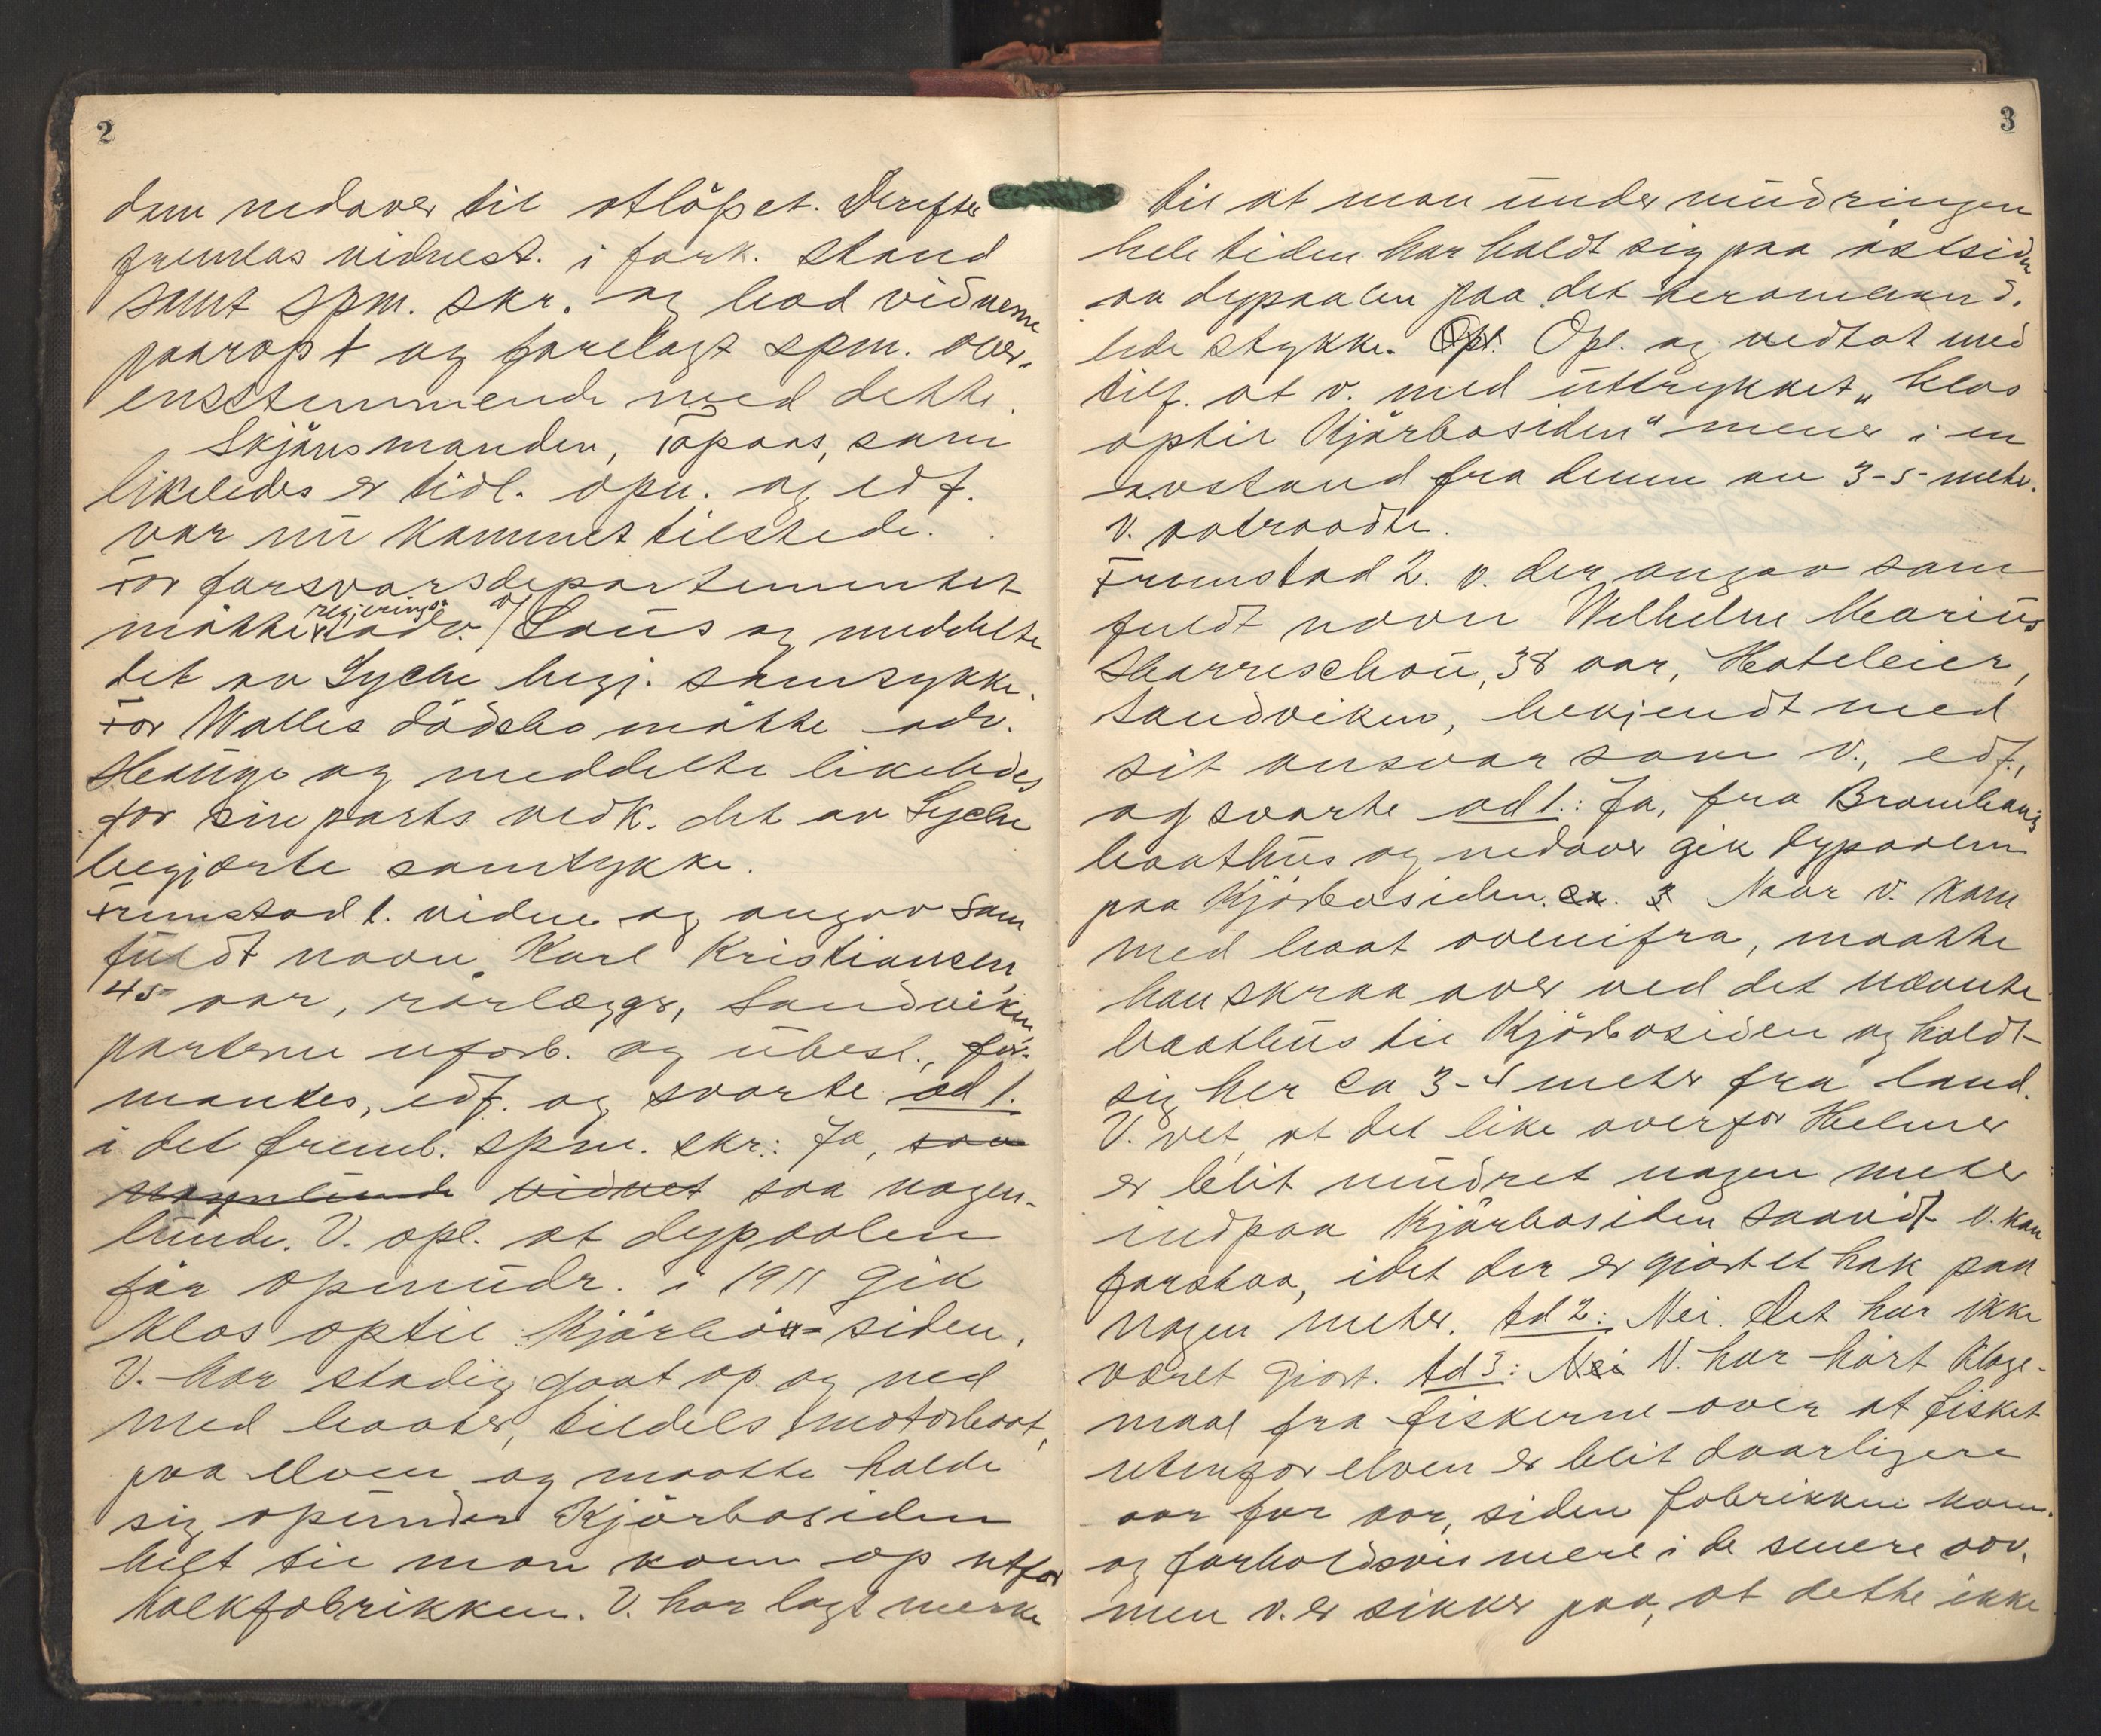 2
dem nedover til utløpet. Derefter
fremlas vidnest. i fork. stand
samt spm. skr. og lod vidnerne
paaropt og forelagt spm. over-
ensstemmende med dette.
Skjønsmanden, Topaas, som
likeledes er tidl. opn. og edf.
var nu kommet tilstede.
For forsvarsdepartementet
møtte regjerings adv. v/ Saüs og meddelte
det av Lyche begj. samtykke.
For Walles dödsbo møtte adv.
Heünge og meddelte likeledes
for sin parts vedk. det av Lyche
begjærte samtykke.
Fremstod 1. vidne og angav som
fuldt navn Karl Kristiansen,
45 aar, rørlægger, Sandviken,
parterne uforb. og übesl., for-
mantes, edf. og svarte ad 1.
i det freml. spm. skr.: Ja, saa
nogenlunde vidnet saa nogen-
lünde. V. opl. at dypaalen
før opmüdr. i 1911 gik
klos optil Kjørbo-siden.
V. har stadig gaat op og ned
med baater, tildels motorbaat,
paa elven og maatte holde
sig opünder Kjørbosiden
helt til man kom op utfor
kalkfabrikken. V. har lagt merke
3
til at man ünder müdringen
hele tiden har holdt sig paa østsiden
av dypaalen paa det heromhand-
lede stykke. Opl. Opl. og vedtat med
tilf. at v. med üttrykket „klos
optil Kjørbosiden" mener i en
avstand fra denne av 3-5 meter.
V. aatraadte.
Fremstod 2. v. der angav som
fuldt navn Wilhelm Mariüs
Harreschou, 38 aar, Hoteleier,
Sandviken, bekjendt med
sit ansvar som v., edf.,
og svarte ad 1.: Ja, fra Bramhaug
baathüs og nedover gik dypaalen
paa Kjørbosiden. ca. 3 Naar v. kom
med baat ovenifra, maatte
han skraa over ved det nævnte
baathüs til Kjørbosiden og holdt
sig her ca 3-4 meter fra land.
V. vet, at det like overfor Helmer
er blit müdret nogen meter
indpaa Kjørbosiden saavidt v. kan
forstaa, idet der er gjort et hak paa
nogen meter. Ad 2: Nei. Det har ikke
været gjort. Ad 3: Nei V. har hørt klage-
maal fra fiskerne over at fisket
utenfor elven er blit daarligere
aar for aar, siden fabrikken kom.
og forholdsvis mere i de senere aar,
men v. er sikker paa, at dette ikke